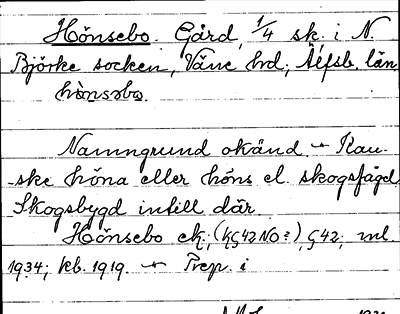 Hönsebo. Gård, 1/4 sk. i N.
Björke socken, Väne hd; Älfsb. län
hònsəbo.
Namngrund okänd. – Kan-
ske höna eller höns el. skogsfågel
Skogsbygd intill där.
Hönsebo ek; (KG42NO?), G42; ml.
1934; kb. 1919. – Prep. i